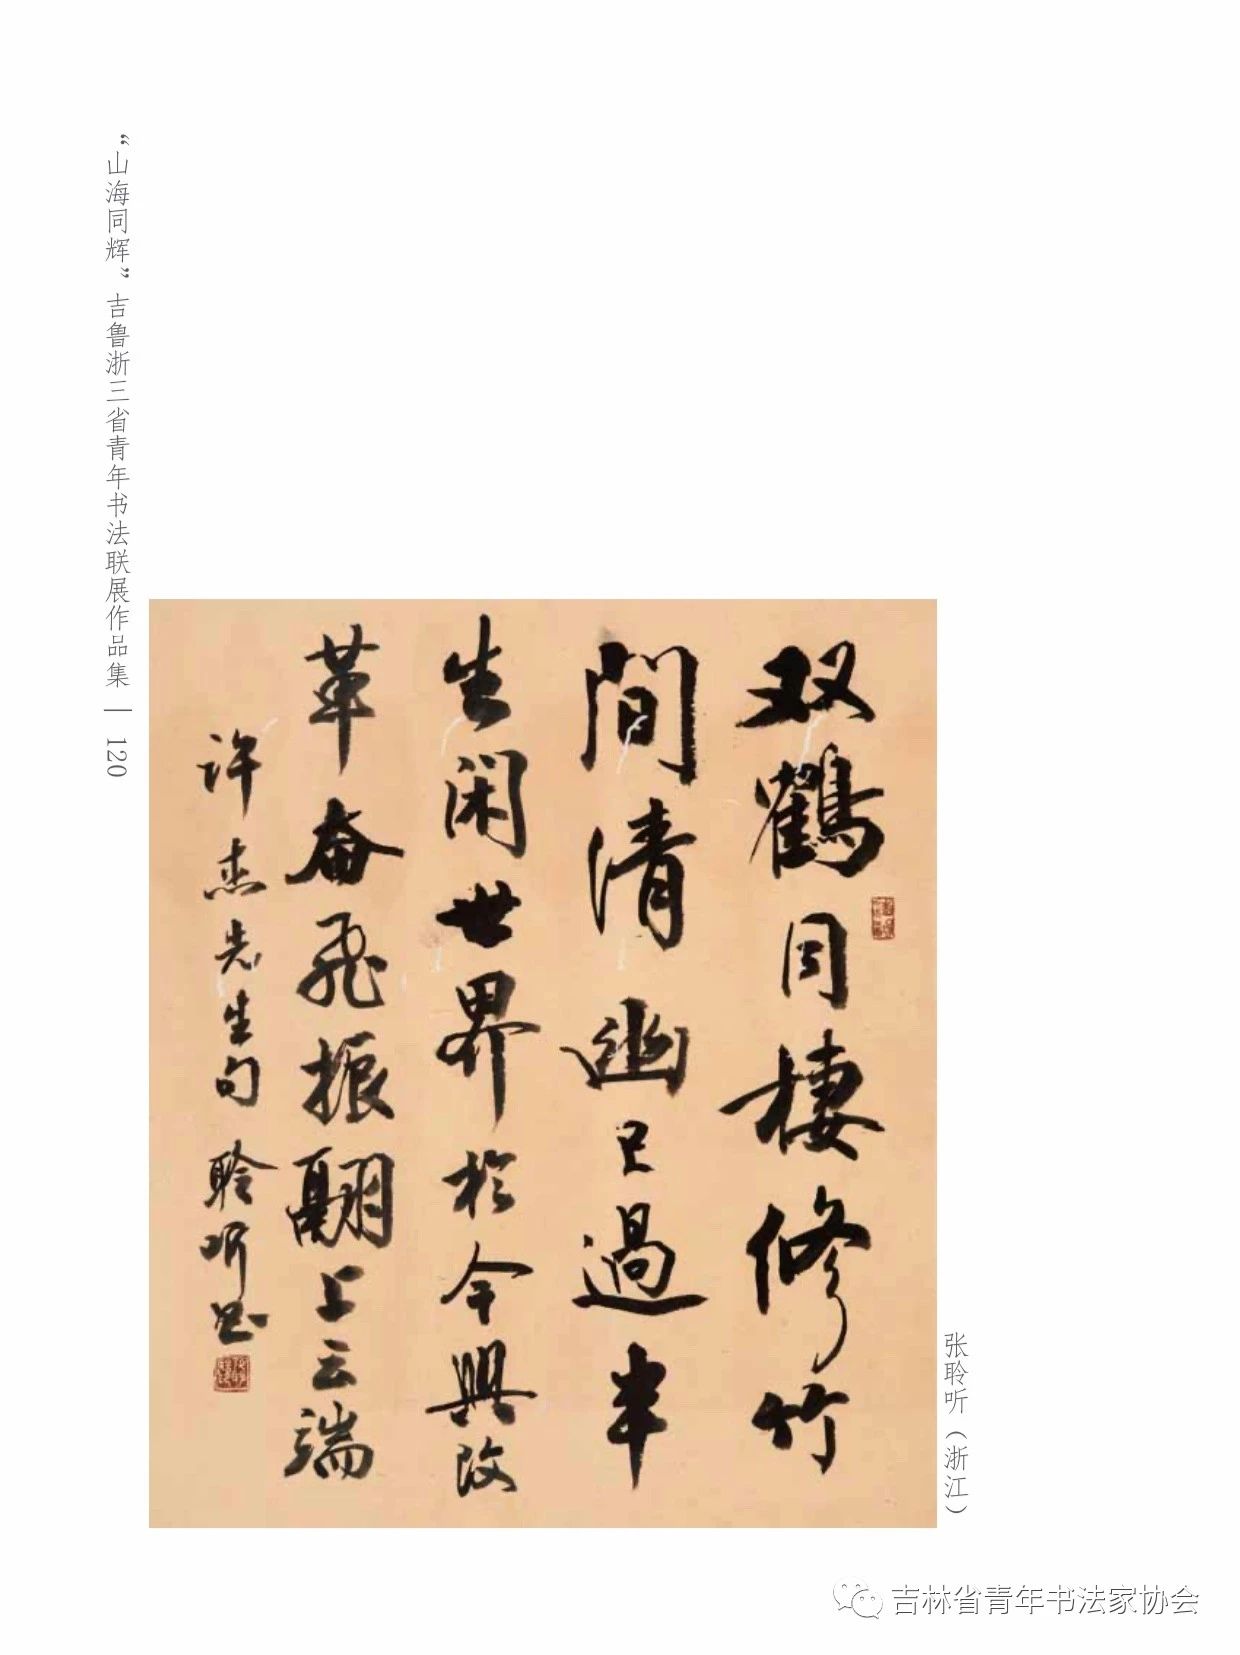 “山海同辉”吉鲁浙三省青年书法联展作品集 | 120
双鹤同棲修竹
間清幽已過半
生闲世界於今興改
革奋飛振翮上云端
许杰先生句 聆听书
张聆听（浙江）
吉林省青年书法家协会